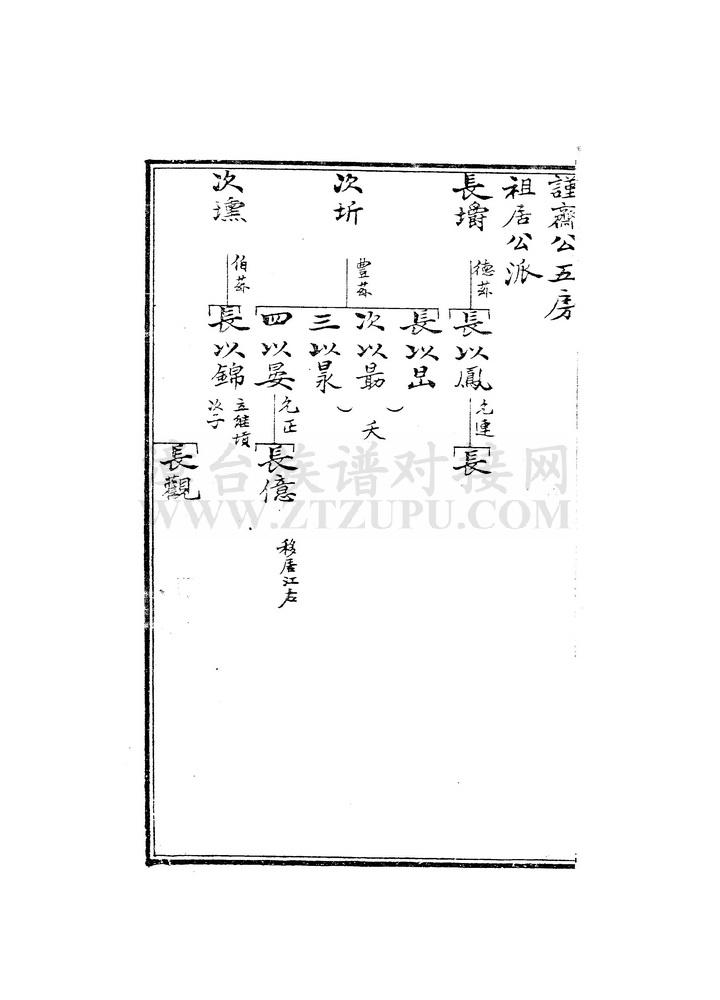 謹齋公五房
祖居公派
長㘐
德蘇
長以鳳
允連
長
次圻
豊蘇
長以昆
次以最
三以晸
夭
四以晏
允正
長億
移居江右
次壎
伯蘇
長以錦
立能墳
次子
長觀
台族谱对接网
WWW.ZTZUPU.COM